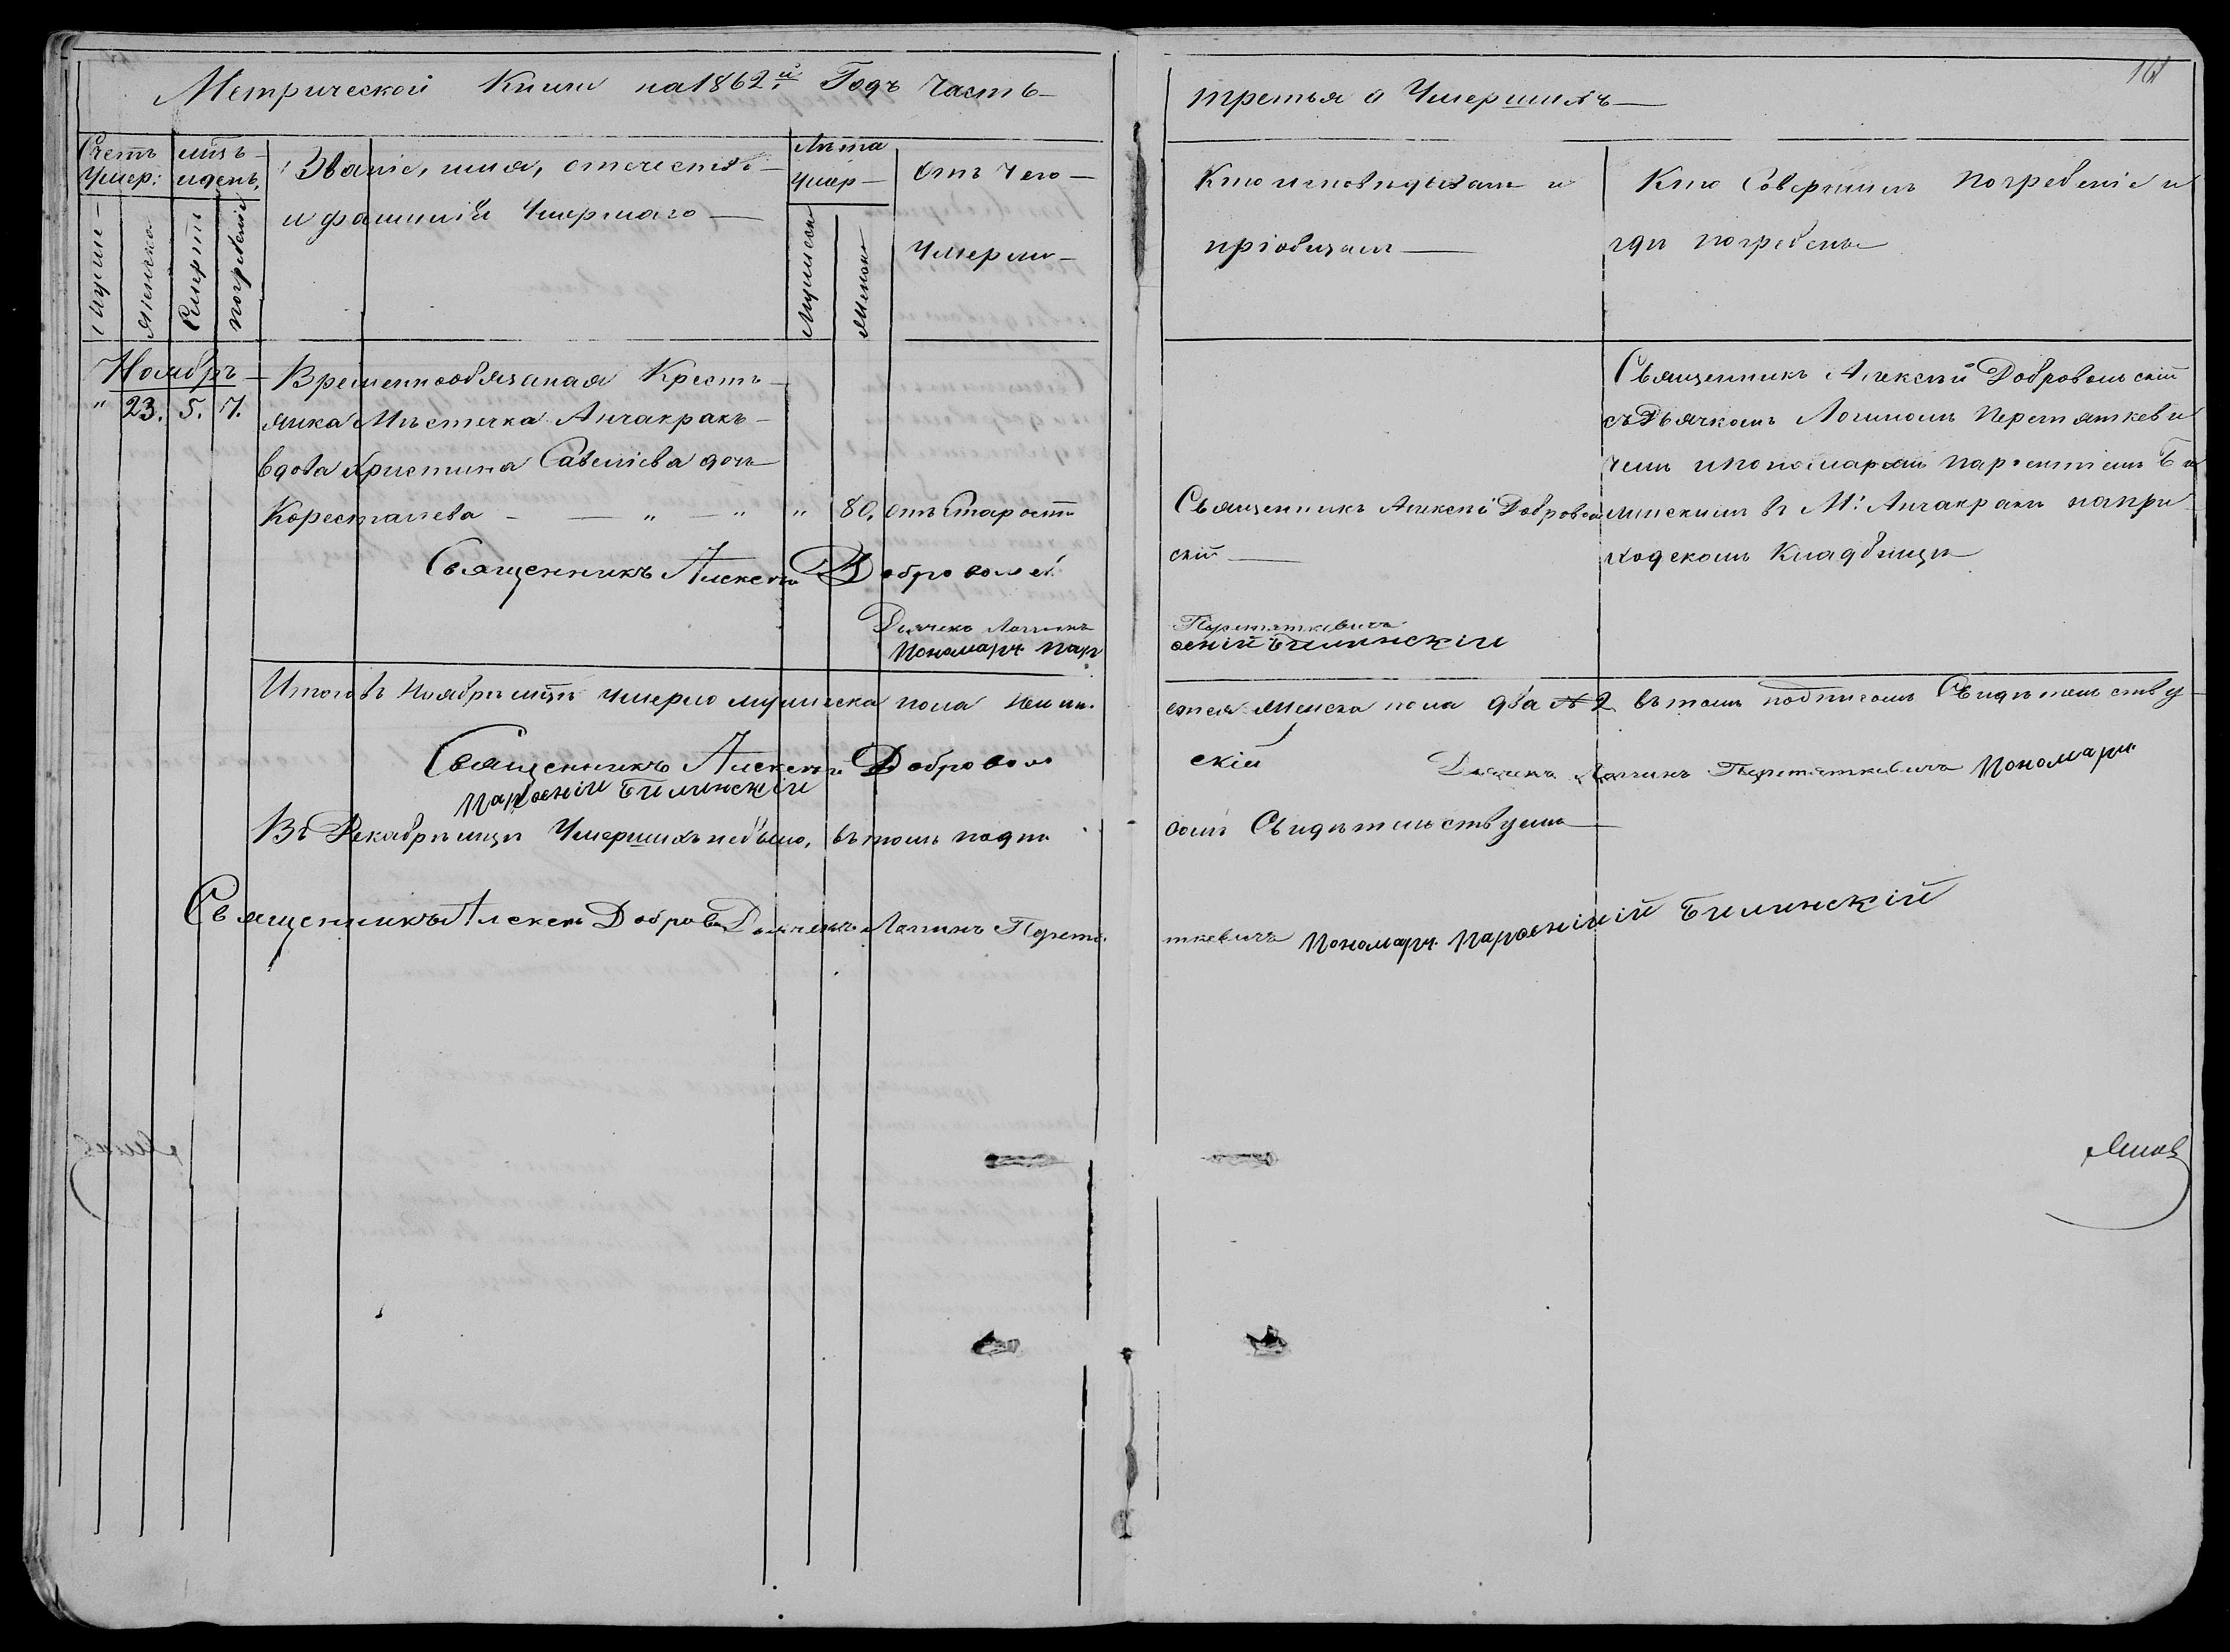 Метрической Книги на 1862.й Годъ Часть
третья о Умершихъ
Счетъ умер:
мцъ и день.
Званіе, имя, отечество
и фамилія Умершаго
Лѣта умер
Отъ чего
Умерли
Мужеска
Женска
Смерти
погребенія
Мужеска
Женска
Кто исповѣдывалъ и
пріобщалъ
Кто Совершилъ погребеніе и
гдѣ погребены
Ноябрь
" 23. 5. 7.
Временнообязаная Кресть-
янка Мѣстечка Анчакракъ
вдова Христина Савеліева дочь
" 80. отъ Старости
Священникъ Алексѣй Доброволь
скій
Священникъ Алексѣй Добровольскій
съ Дьячкомъ Логиномъ Перетяткеви
чемъ и пономаремъ Парѳеніемъ Би
линскимъ въ М: Анчакракѣ на при
ходскомъ Кладбищѣ
Священникъ Алексѣй Доброволь
Дьячекъ Логинъ Перетяткевичъ
Пономарь Парѳеній Билинскій
Итого въ Ноябрѣ мцѣ умерло мужеска пола неимѣ
ется женска пола два № 2 въ томъ подписомъ Свидѣтельству
Священникъ Алексѣй Доброволь
скій Дьячекъ Логинъ Перетяткевичъ Пономарь
Парѳеній Билинскій
Въ Декабрѣ мцѣ Умершихъ небыло, въ томъ подпи
сомъ Свидѣтельствуемъ
Священникъ Алексѣй Добров Дьячекъ Логинъ Перетя
ткевичъ Пономарь Парѳеній Билинскій